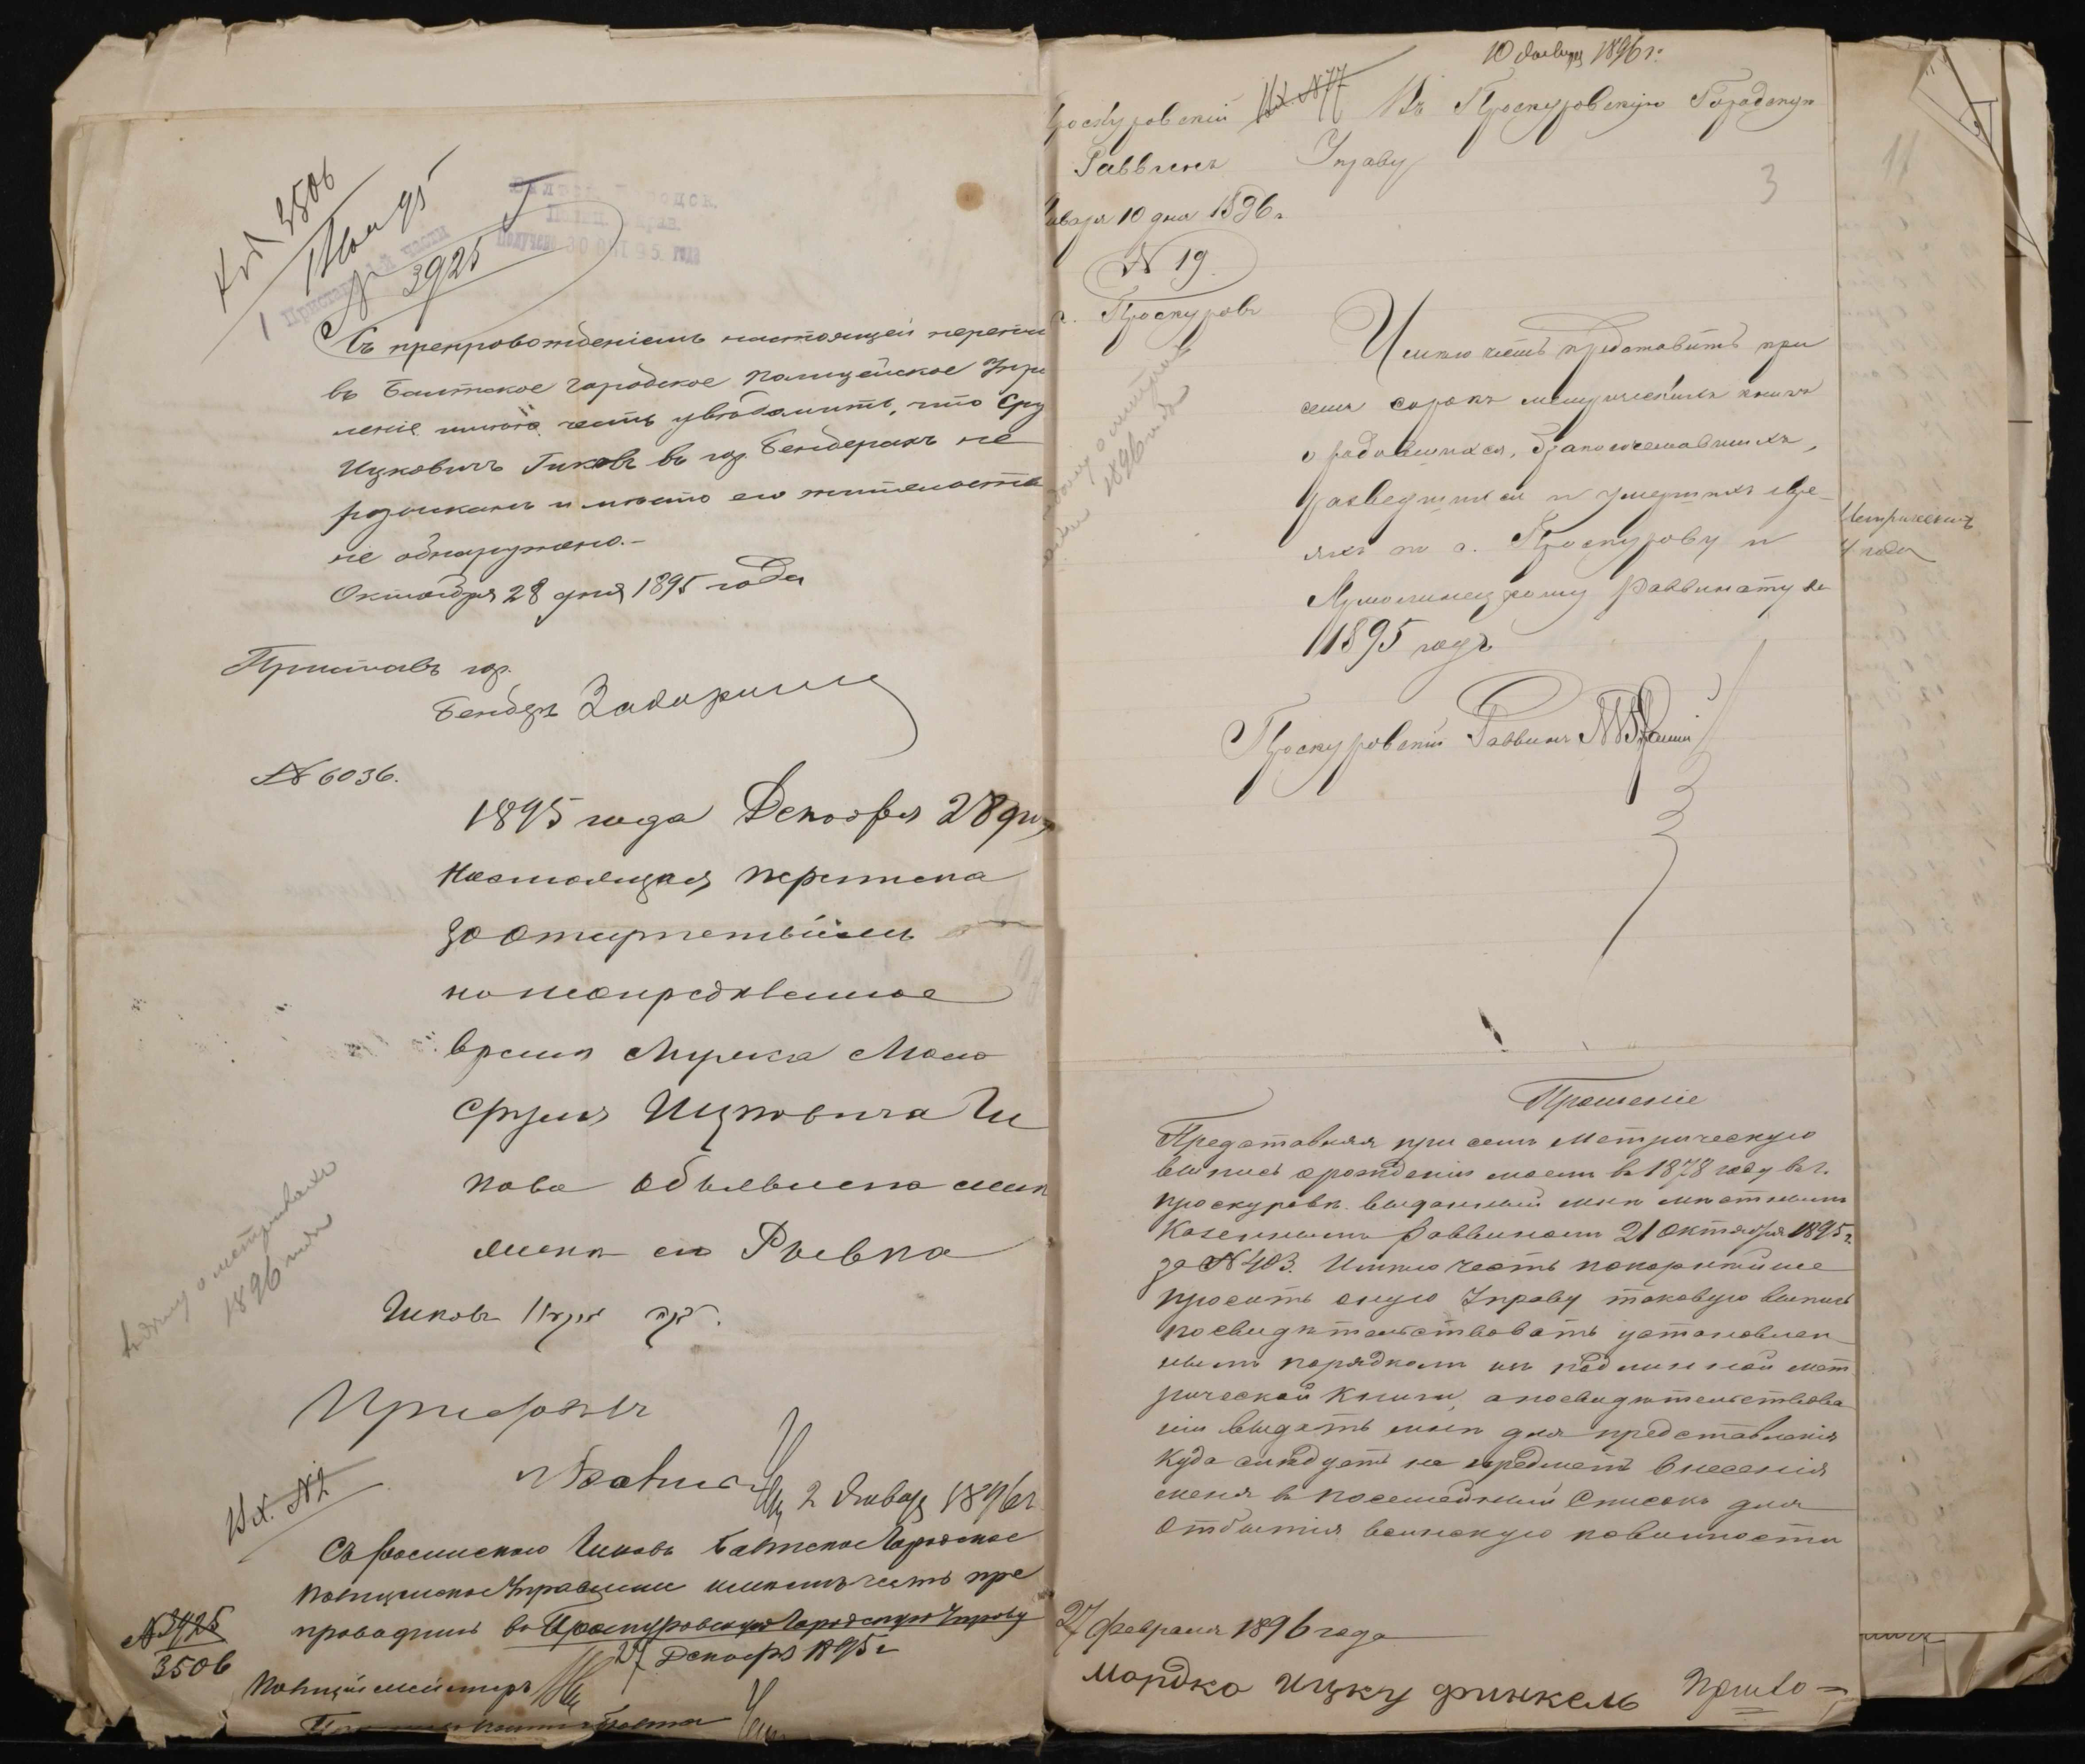 3506
3925
Съ препровожденіемъ настоящей переписки
въ Балтское городское полицейское Упра
леніе имѣю честь увѣдомить, что Сру
Ицковичъ Гиковъ въ гор. Бендерахъ не
розысканъ и мѣсто его жительства
не обнаружено.-
Октября 28 дня 1895 года
Приставъ гор.
Бендеръ
№ 6036.
1895 года Декабря 28 дня
Настоящая переписка
за отсутствіемъ
въ настоящее
время мужа моего
Сруля Ицковича Ги
кова объявлена мнѣ
женѣ его Рывка
Гиковъ
Приставъ
Вх. №2
2 Января 1896 г.
Съ роспискою Гиковъ Балтское Городское
Полицейское Управленіе имѣетъ честь пре
проводить въ Проскуровскую Городскую Управу
27 Декабря 1895 г.
№3925
3506
Полиціймейстеръ
1896 года
10 Января 1896 г.
Вх. №77
Проскуровскій
Раввинъ
Января 10 дня 1896 г.
№ 19
г. Проскуровъ
Въ Проскуровскую Городскую
Управу
3
Имѣю честь представить при
семъ сорокъ метрическихъ книгъ
о родившихся, бракосочетавшихся,
разведшихся и умершихъ евре-
яхъ по г. Проскурову и
Ярмолинецкому раввинату за
1895 годъ
Проскуровскій Раввинъ
1896 года
Прошеніе
Представляя при семъ метрическую
выпись о рожденіи моемъ въ 1878 году въ г.
Проскуровѣ выданный мнѣ мѣстнымъ
Казеннымъ Раввиномъ 21 Октября 1895 г.
за №403. Имѣю честь покорнѣйше
просить оную Управу таковую выпись
посвидѣтельствовать установлен-
нымъ порядкомъ изъ подлинной мет
рической книги, а по свидѣтельствова
ніи выдать мнѣ для представленія
куда слѣдуетъ на предметъ внесенія
меня въ посемейный списокъ для
отбытія воинскую повинности
27 февраля 1896 года
Мордко Ицку Финкель
11